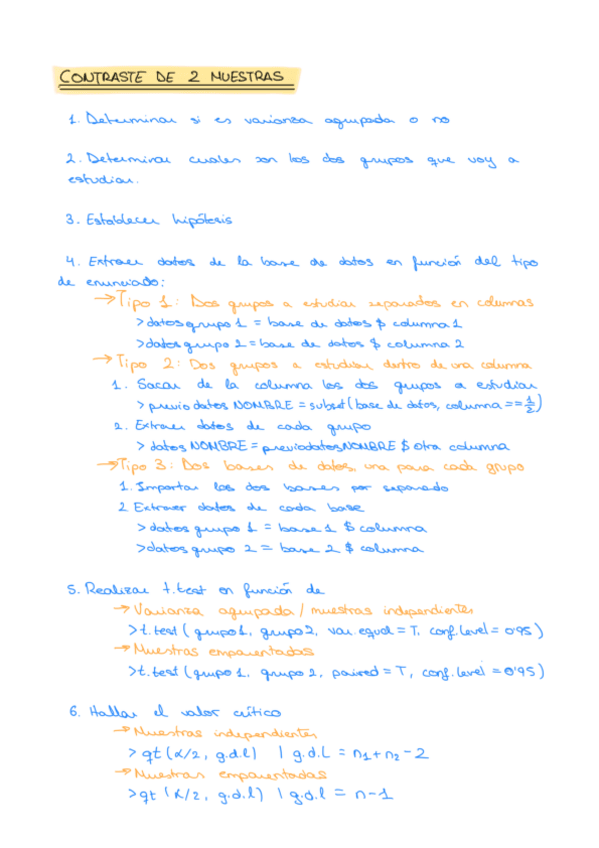 CONTRASTE DE 2 MUESTRAS
1. Determinar si es varianza agrupada o no
2. Determinar cuales son los dos grupos que voy a
estudiar.
3. Establecer hipótesis
4. Extraer datos de la base de datos en función del tipo
de enunciado:
→Tipo 1: Dos grupos a estudiar separados en columnas
>datosgrupo 1 = base de datos $ columna 1
>datos grupo 2 = base de datos $ columna 2
→Tipo 2: Dos grupos a estudiar dentro de una columna
1. Sacar de la columna los dos grupos a estudiar
> previo datos NOMBRE = subset (base de datos, columna == 1/2)
2. Extraer datos de cada grupo
> datos NOMBRE = previodatos NOMBRE $ otra columna
→Tipo 3: Dos bases de datos, una para cada grupo
1. Importar las dos bases por separado
2 Extraer datos de cada base
>datos grupo 1 = base 1 $ columna
>datos grupo 2 = base 2 $ columna
5. Realizar t.test en función de
→ Varianza agrupada / muestras independientes
>t.test (grupo 1, grupo 2, var.equal = T, conf.level = 0'95)
→ Muestras emparentadas
>t.test (grupo 1, grupo 2, paired = T, conf.level = 0'95)
6. Hallar el valor crítico
→ Muestras independientes
> qt (α/2, g.d.l) | g.d.L = n1 + n2 - 2
→ Muestras emparentadas
>qt (α/2, g.d.l) | g.d.l = n-1